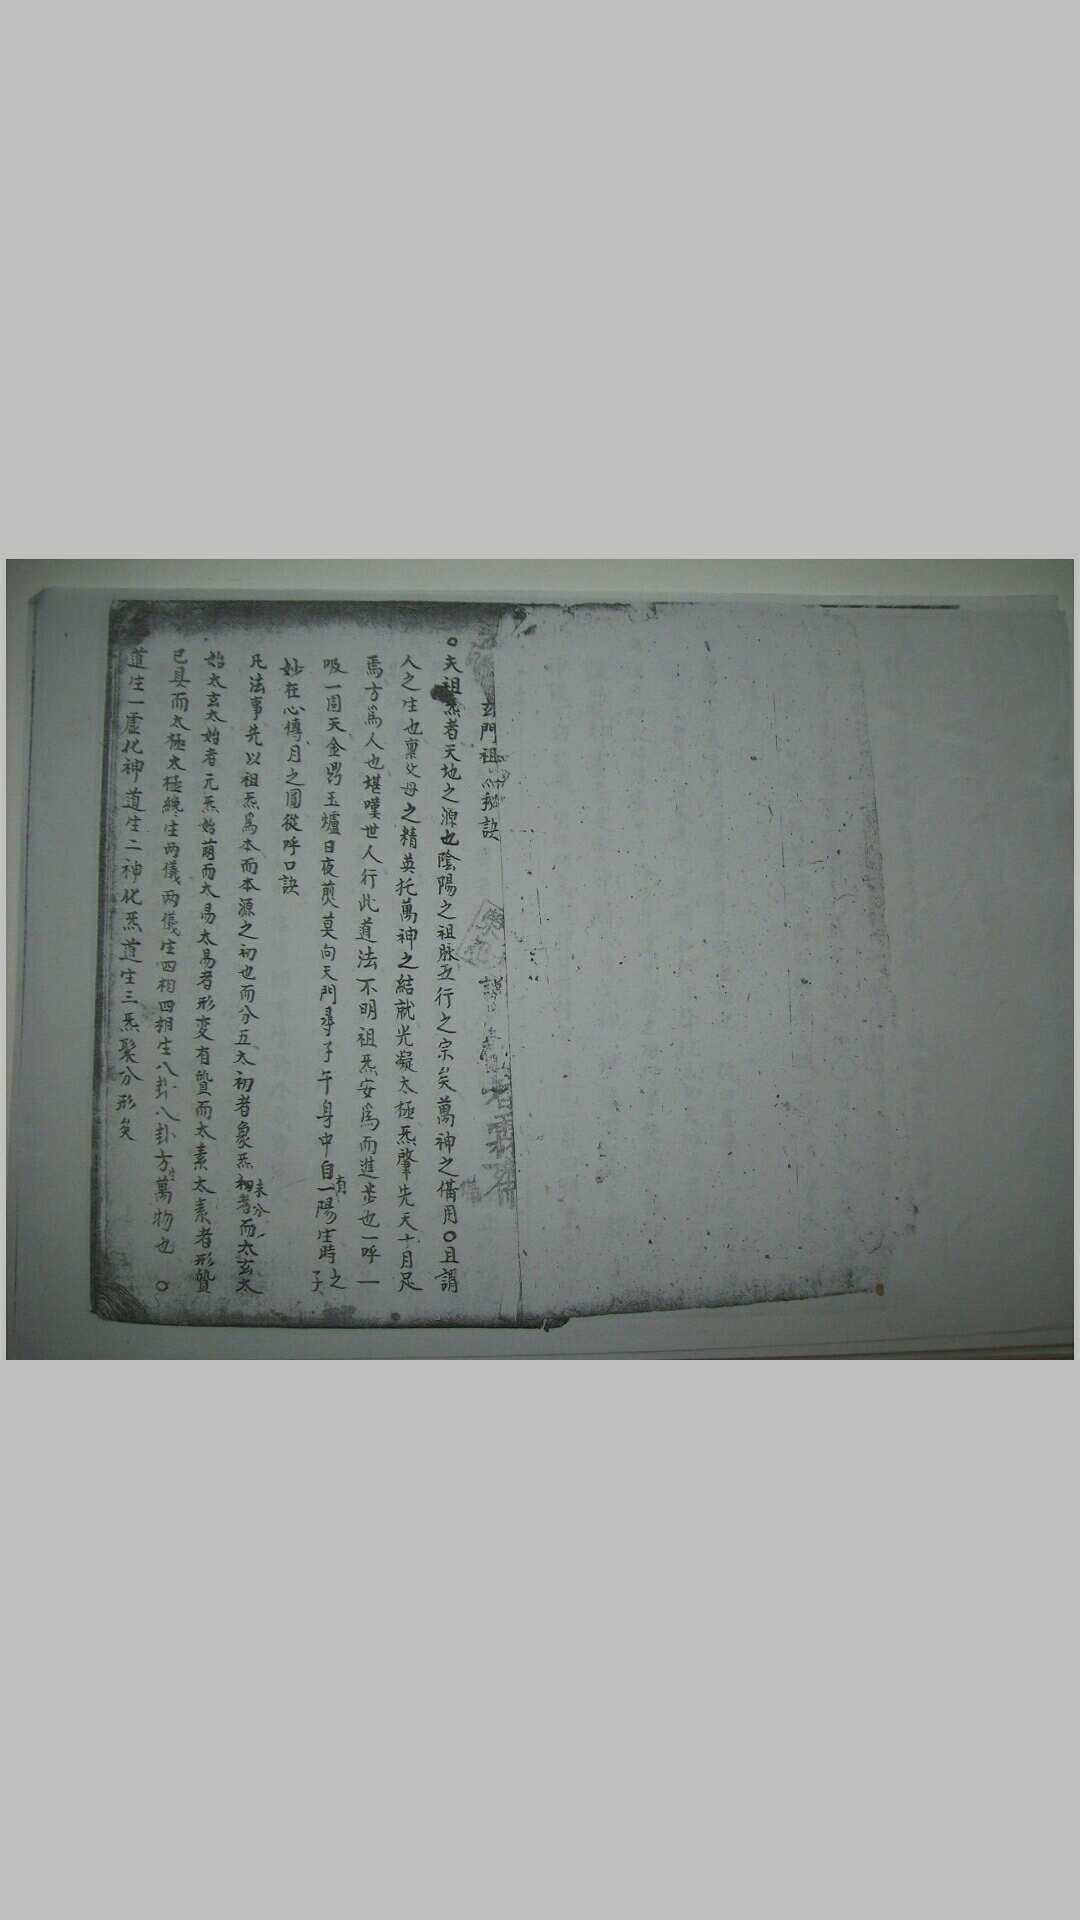 玄門祖炁秘訣
○夫祖炁者天地之源也陰陽之祖脉五行之宗矣萬神之俻用○且謂
人之生也稟父母之精英托萬神之結就光凝太極炁肇先天十月足
焉方爲人也堪嘆世人行此道法不明祖炁安爲而進步也一呼一
吸一周天金鼎玉爐日夜煎莫向天門尋子午身中自有一陽生時之子
妙在心傳月之圓從呼口訣
凡法事先以祖炁爲本而本源之初也而分五太初者象炁未分而太玄太
始太玄太始者元炁始萌而太易太易者形变有質而太素太素者形質
已具而太極太極纔生两儀两儀生四相四相生八卦八卦方生萬物也○
道生一虛化神道生二神化炁道生三炁聚分形矣